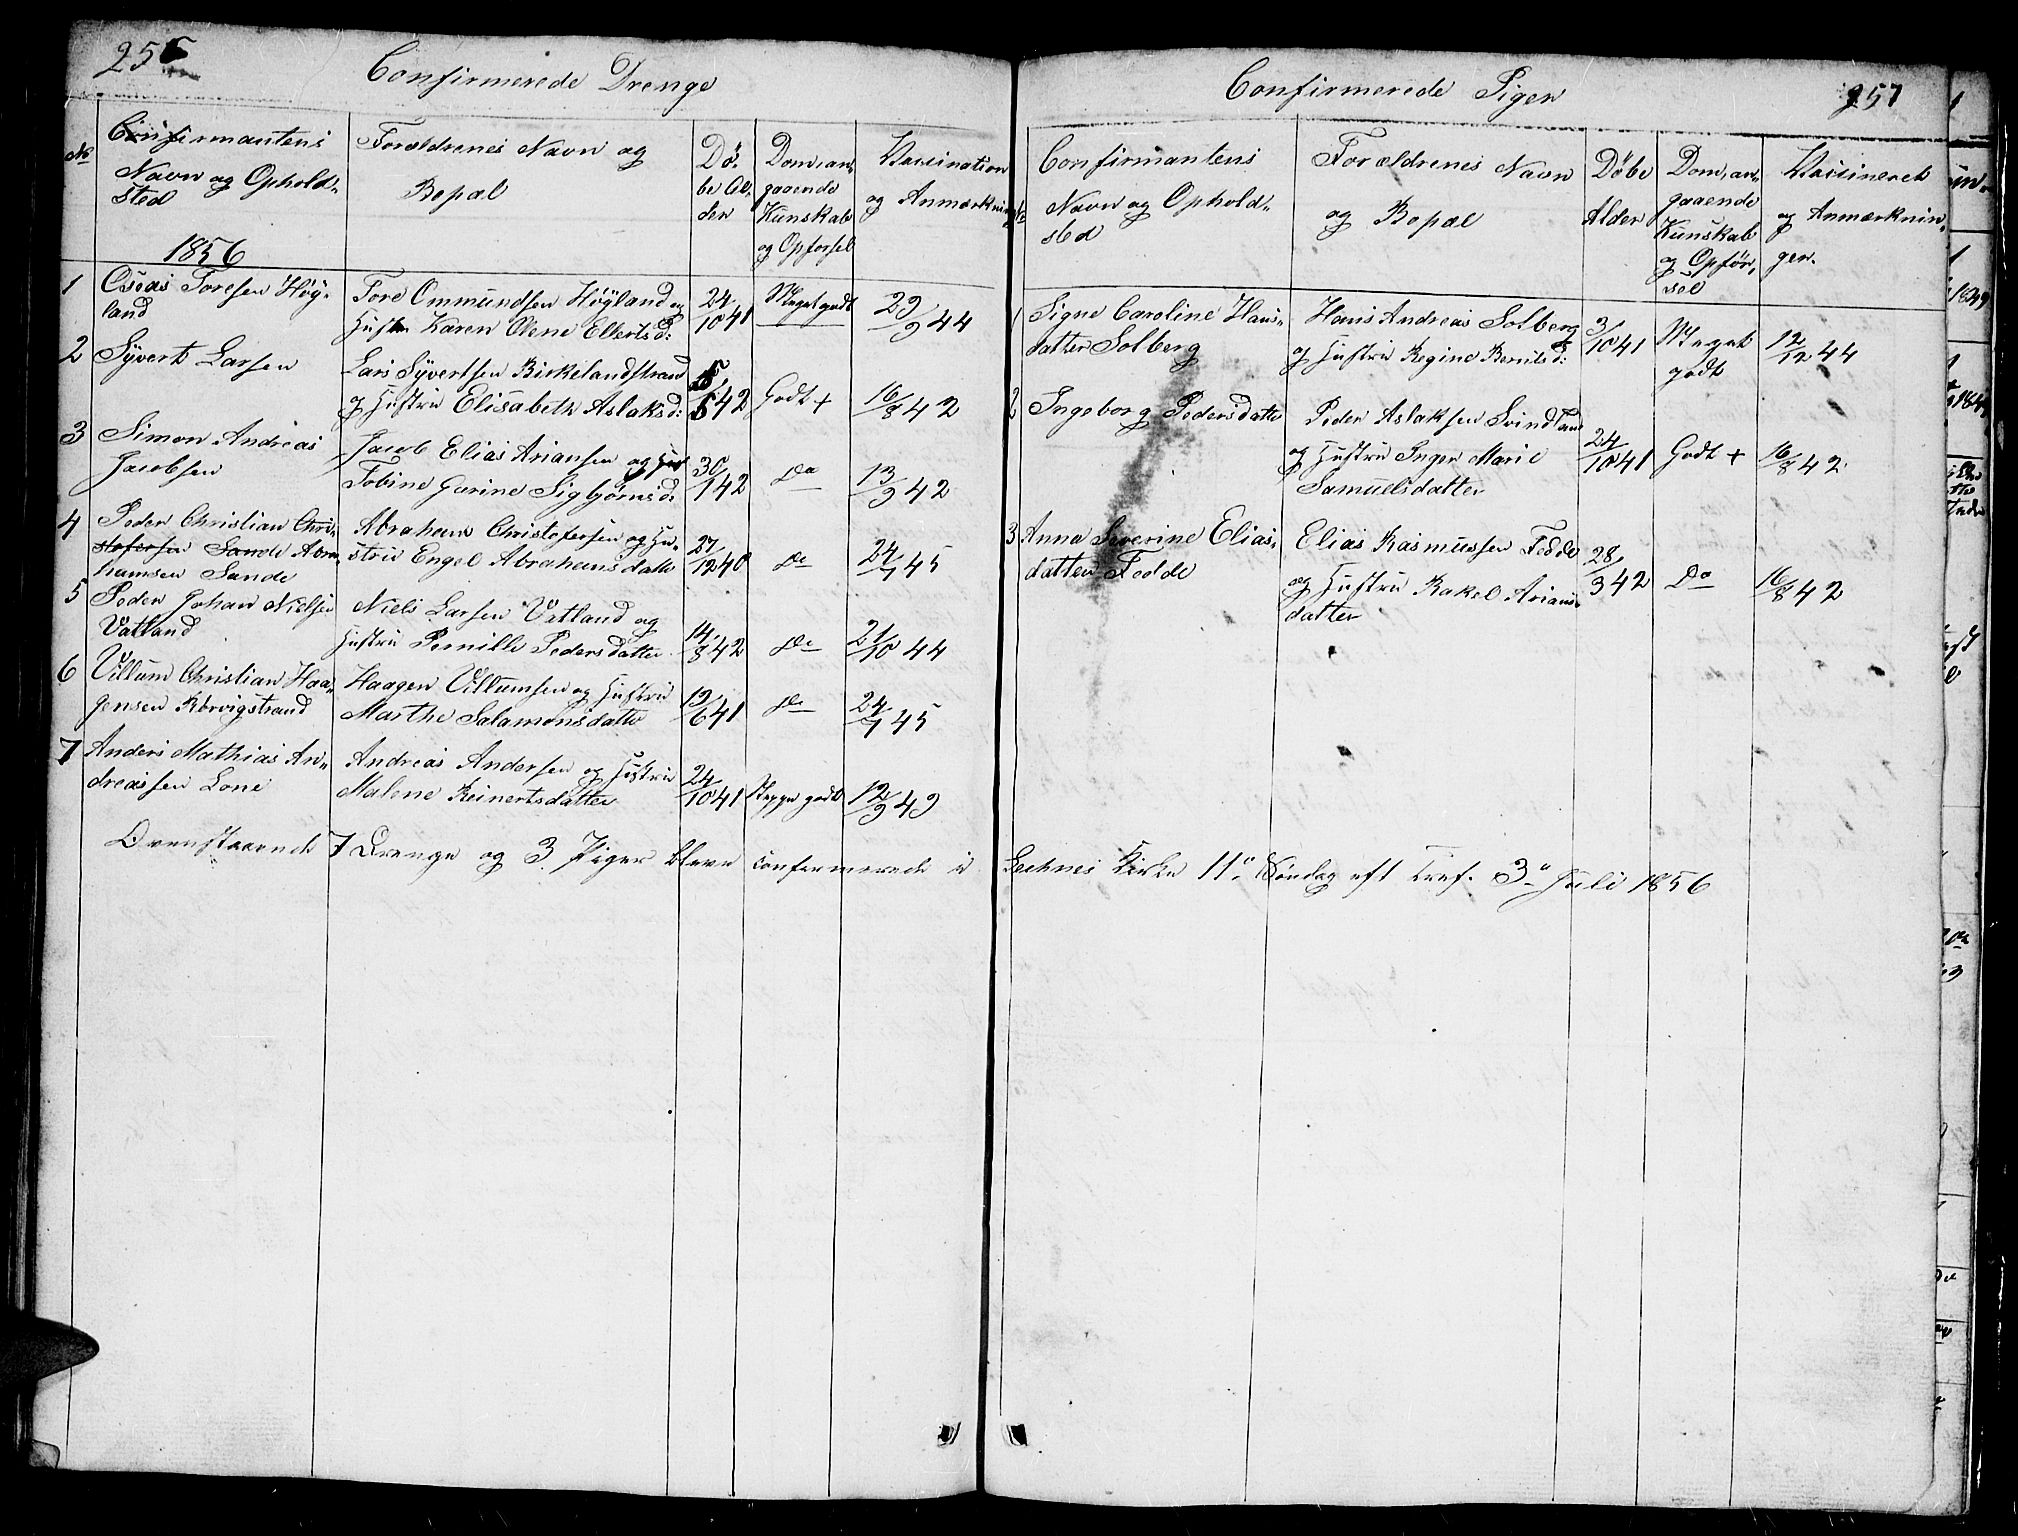 256
Confirmerede Drenge
No
Confirmantens
Navn og Ophold-
sted
Forældrenes Navn og
Bopæl
Dö-
be Al-
der
Dom, an-
gaaende
Kunskab
og Opførsel
Vaccination
og Anmærknin
1856
1
Oseas Toresen Høg-
land
Tore Ommundsen Høyland og
Hustru Karen Olene Ellertsd:
24/10 41
Meget godt
29/9 44
2
Syvert Larsen
Lars Syvertsen Birkelandstrand
og Hustru Elisabeth Aslaksd:
42
Godt +
16/8 42
3
Simon Andreas
Jacobsen
Jacob Elias Ariansen og Hust
Tobine Garine Sigbjørnsd:
30/1 42
Do
13/9 42
4
Peder Christian Chri-
stofersen Sande Abra-
hamsen Sande
Abraham Christofersen og Hu-
stru Engel Abrahamsdatter
27/12 40
Do
24/7 45
5
Peder Johan Nielsen
Vatland
Niels Larsen Vatland og
Hustru Pernille Pedersdatter
14/8 42
Do
21/10 44
6
Villum Christian Haa-
gensen Rørvigstrand
Haagen Villumsen og Hustru
Marthe Salamonsdatter
13/6 41
Do
24/7 45
7
Anders Mathias An-
dreassen Lone
Andreas Andersen og Hustru
Malene Reinertsdatter
24/10 41
godt
12/9 49
Ovenstaaende 7 Drenge og 3 Piger bleve confirmerede i
257
Confirmerede Piger
Confirmantens
Navn og Ophold-
sted
Forældrenes Navn
og Bopæl
Döbe
Alder
Dom, an-
gaaende
Kunskab
og Opfør-
sel
Vaccineret
og Anmærknin-
gen.
1
Signe Caroline Hans-
datter Solberg
Hans Andreas Solberg
og Hustru Regine Berntsd:
3/10 41
Meget
godt
12/12 44
2
Ingeborg Pedersdatter
Peder Aslaksen Svindland
og Hustru Inger Marie
Samuelsdatter
24/10 41
Godt +
16/8 42
3
Anna Severine Elias-
datter Fedde
Elias Rasmussen Fedde
og Hustru Rakel Arians-
datter
28/3 42
Do
16/8 42
Kirke 11te Søndag eft Tref. 3de Juli 1856